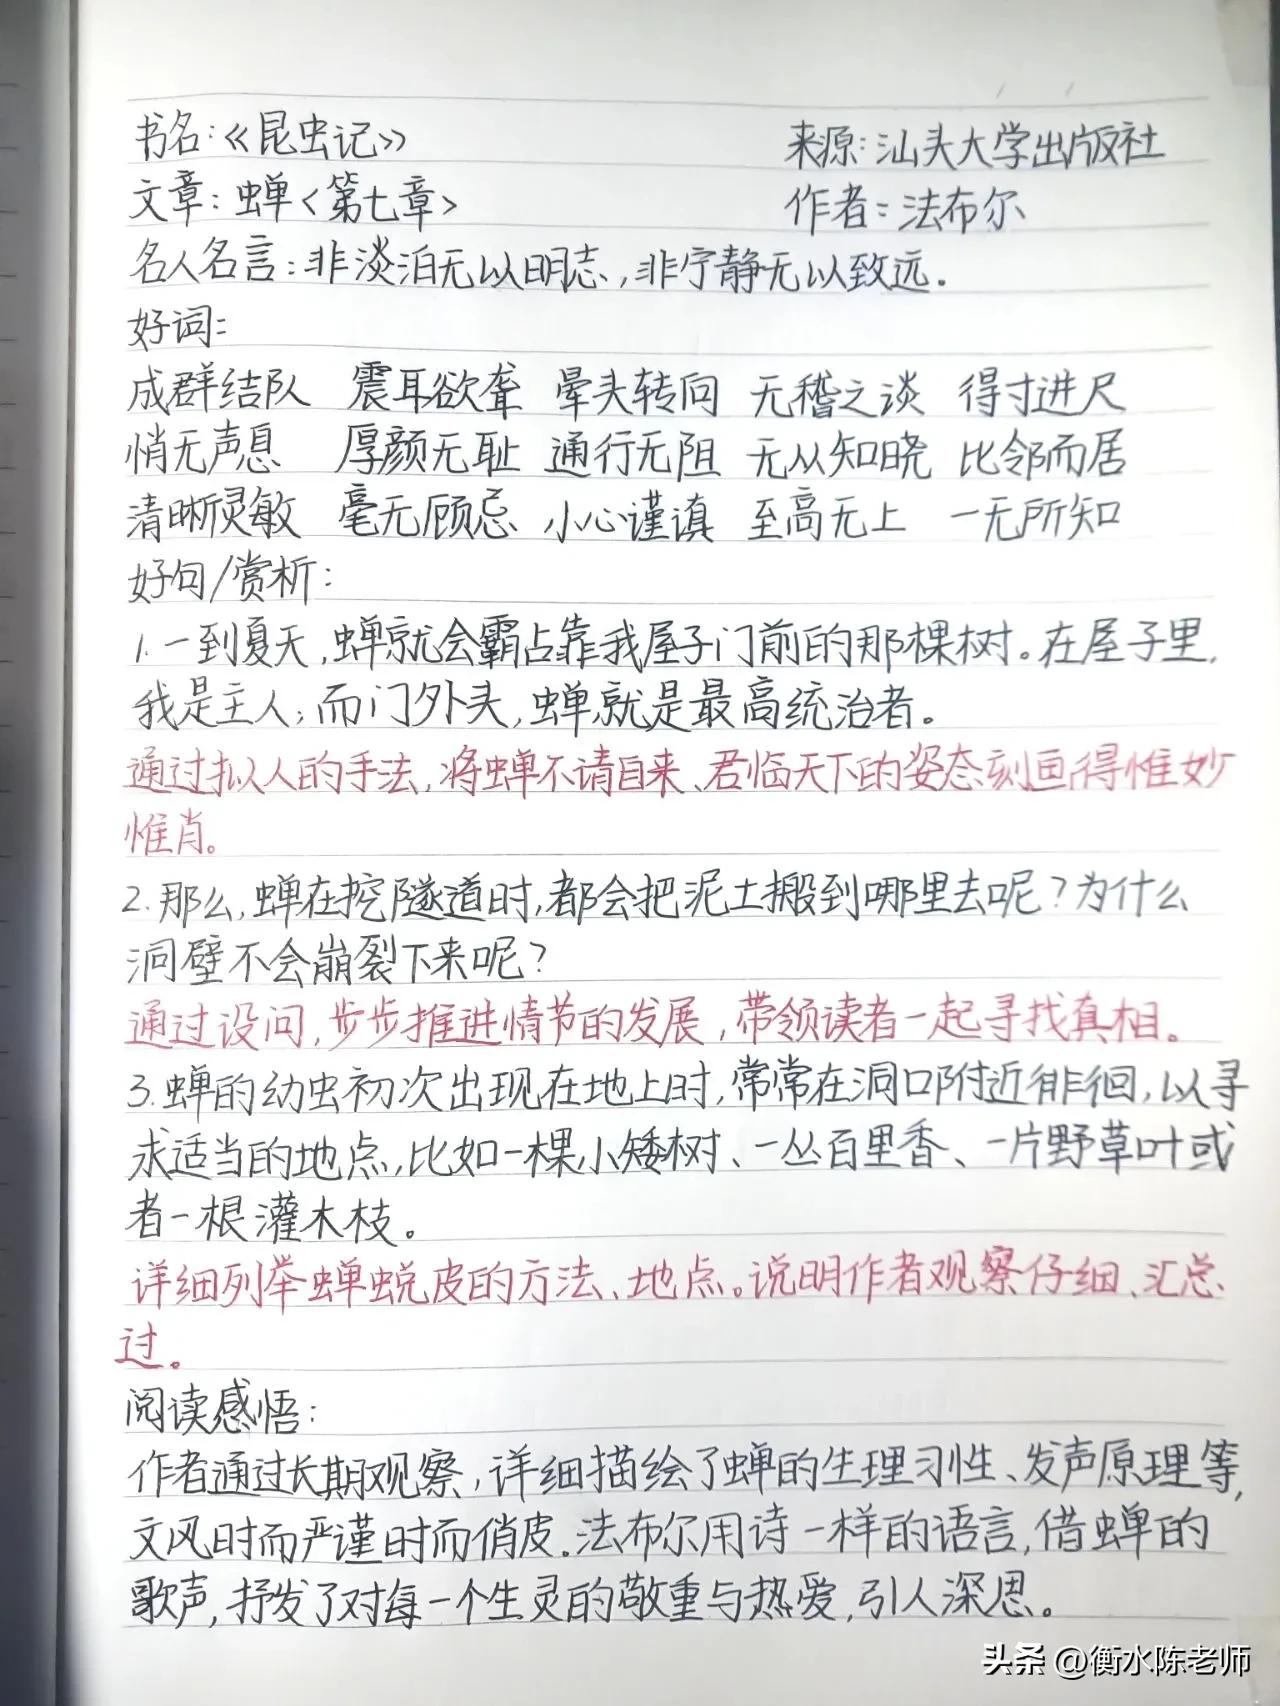 书名:《昆虫记》 来源:汕头大学出版社
文章:蝉<第七章> 作者:法布尔
名人名言:非淡泊无以明志,非宁静无以致远.
好词:
成群结队 震耳欲聋 晕头转向 无稽之谈 得寸进尺
悄无声息 厚颜无耻 通行无阻 无从知晓 比邻而居
清晰灵敏 毫无顾忌 小心谨慎 至高无上 一无所知
好句/赏析:
1.一到夏天,蝉就会霸占靠我屋子门前的那棵树。在屋子里,
我是主人;而门外头,蝉就是最高统治者。
通过拟人的手法,将蝉不请自来、君临天下的姿态刻画得惟妙
惟肖。
2.那么,蝉在挖隧道时,都会把泥土搬到哪里去呢?为什么
洞壁不会崩裂下来呢?
通过设问,步步推进情节的发展,带领读者一起寻找真相。
3.蝉的幼虫初次出现在地上时,常常在洞口附近徘徊,以寻
求适当的地点,比如一棵小矮树、一丛百里香、一片野草叶或
者一根灌木枝。
详细列举蝉蜕皮的方法、地点。说明作者观察仔细、汇总
过。
阅读感悟:
作者通过长期观察,详细描绘了蝉的生理习性、发声原理等,
文风时而严谨时而俏皮.法布尔用诗一样的语言,借蝉的
歌声,抒发了对每一个生灵的敬重与热爱,引人深思。
头条 @衡水陈老师